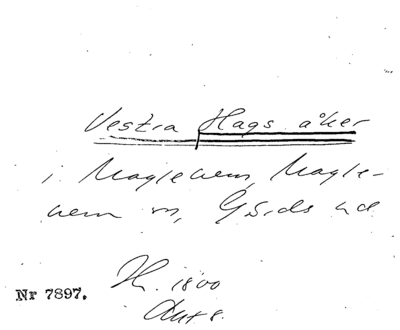 Vestra Hags åker
i Maglehem, Magle-
hem sn, Gärds hd
Nr 7897.
H. 1800